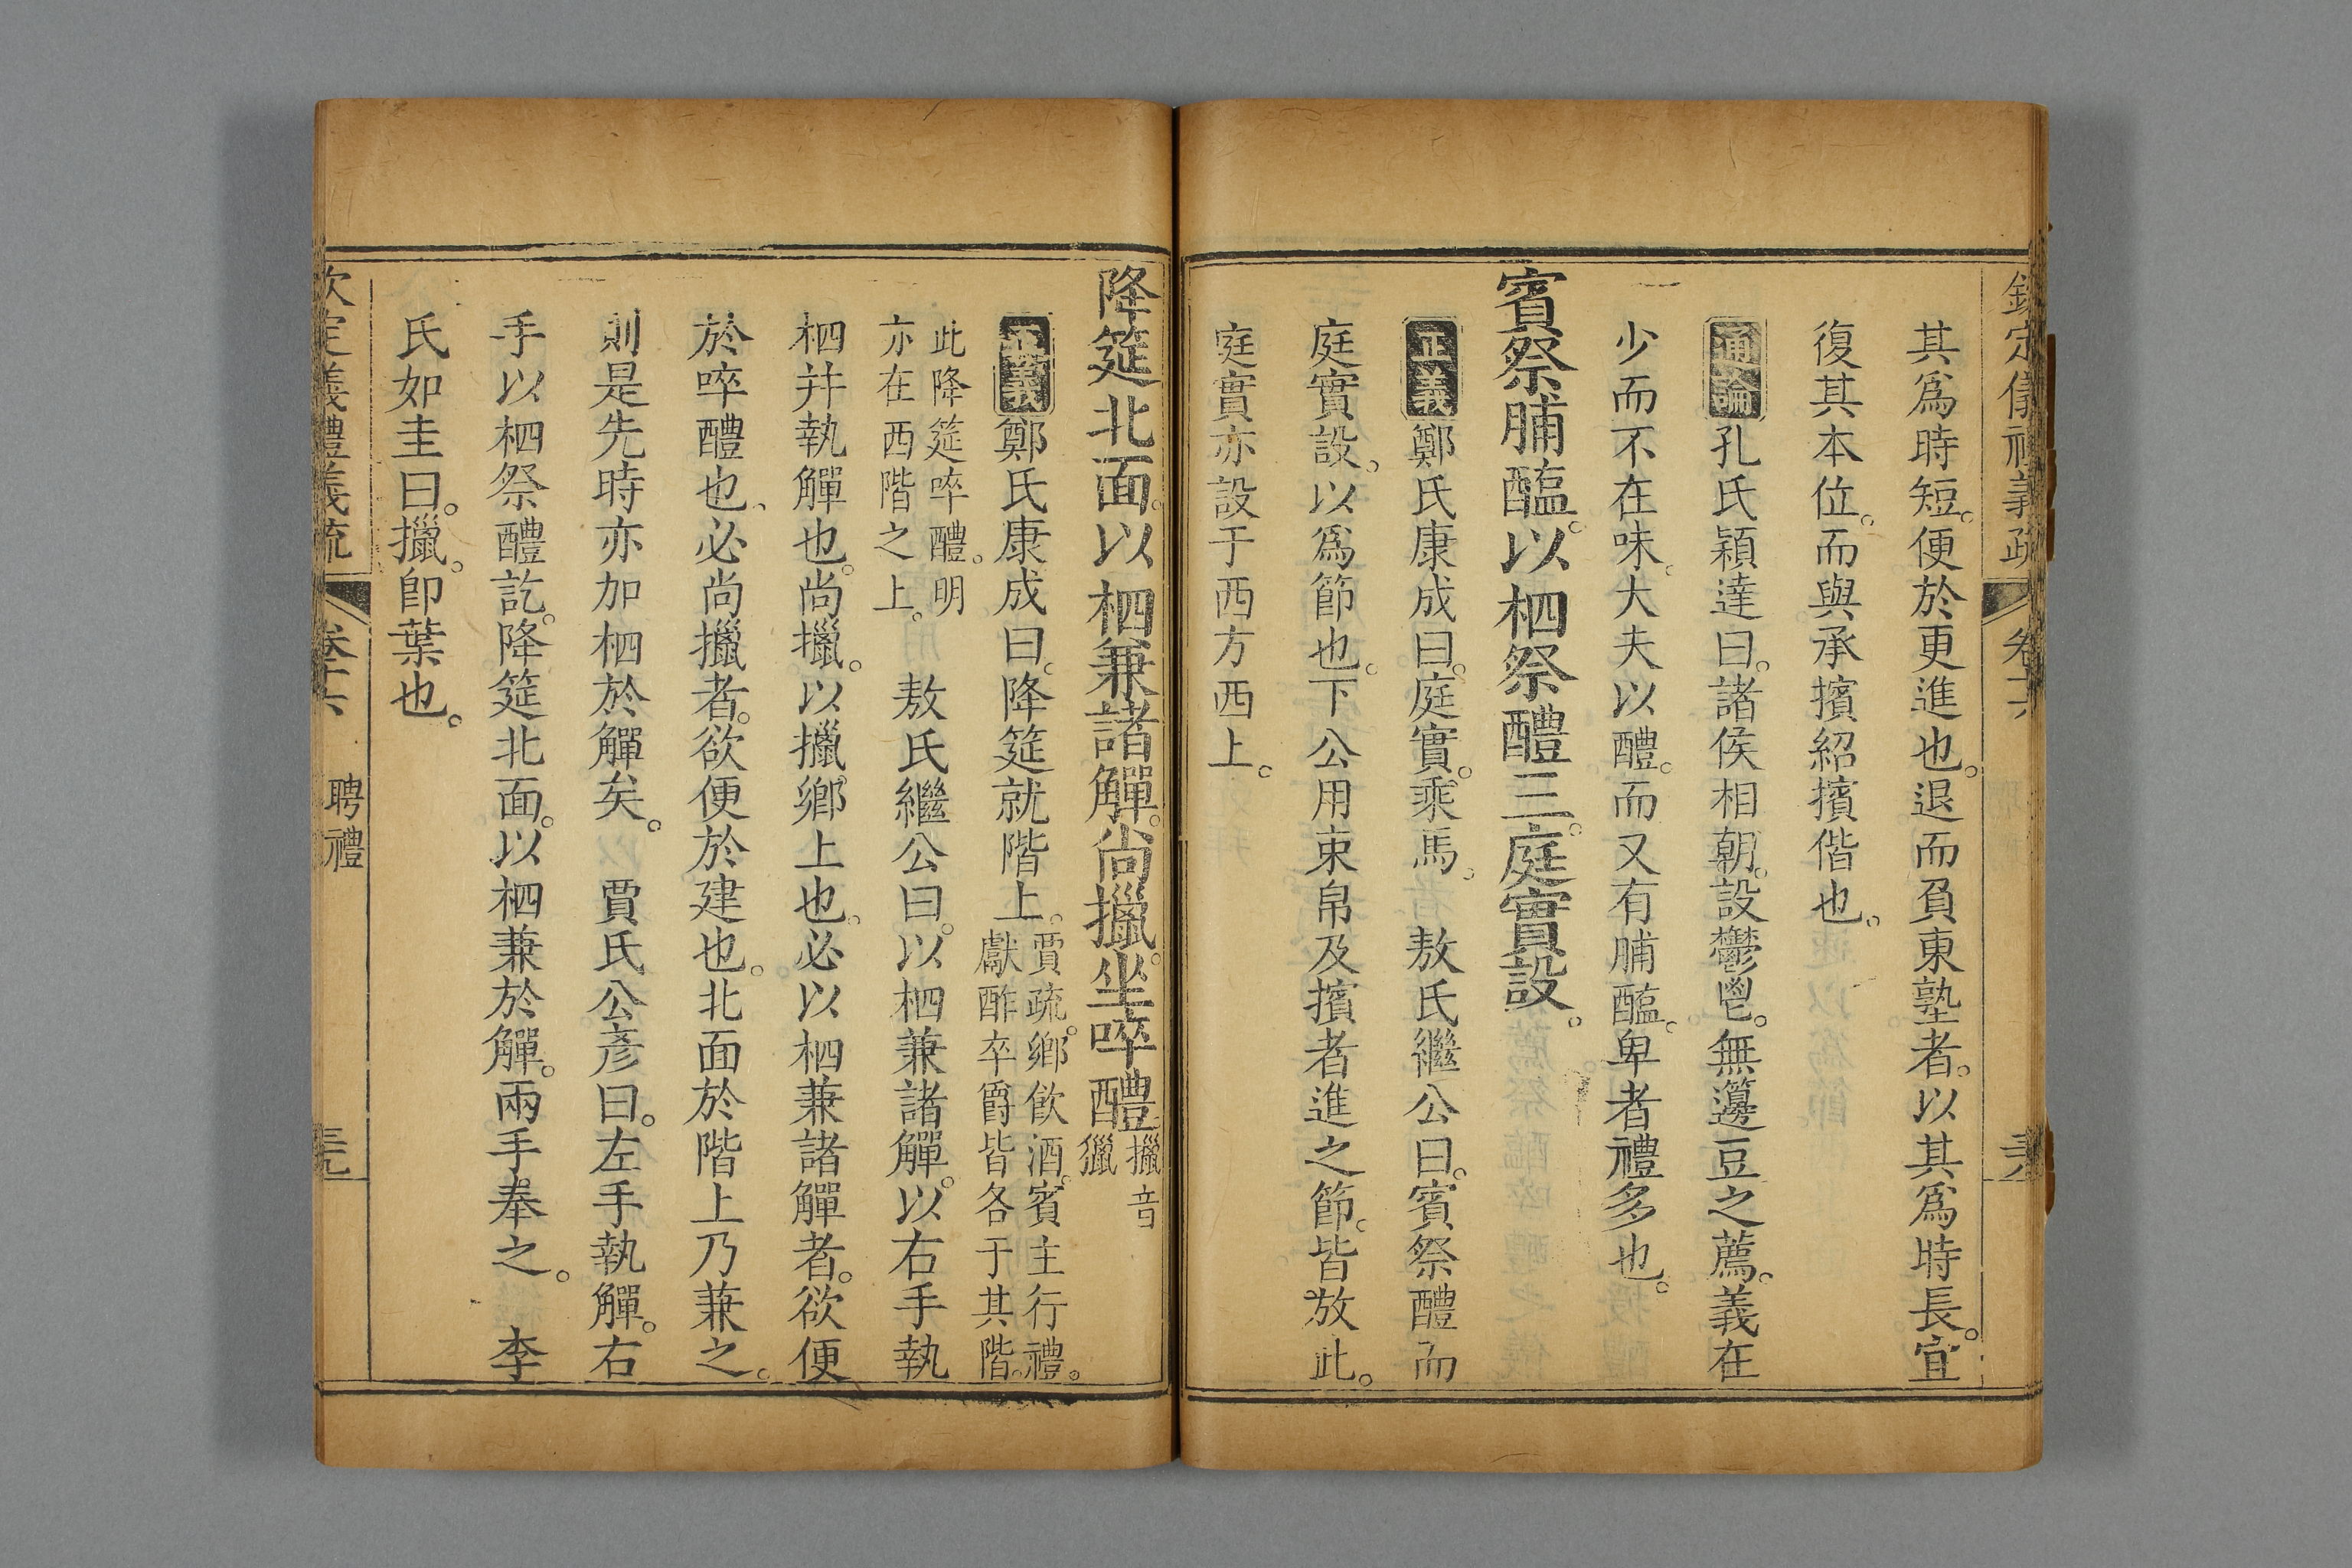 欽定儀禮義疏 卷十六
其爲時短。便於更進也。退而負東塾者。以其爲時長。宜
復其本位。而與承擯紹擯偕也。
通論孔氏穎達曰。諸侯相朝。設鬱鬯。無籩豆之薦。義在
少而不在味。大夫以醴。而又有脯醢。卑者禮多也。
賓祭脯醢。以柶祭醴三。庭實設。
正義鄭氏康成曰。庭實。乘馬。 敖氏繼公曰。賓祭醴而
庭實設。以爲節也。下公用束帛及擯者進之節。皆放此。
庭實亦設于西方西上。
降筵北面。以柶兼諸觶。尚擸。坐啐醴。擸音獵
正義鄭氏康成曰。降筵就階上。賈疏。鄉飲酒。賓主行禮。獻酢卒爵皆各于其階。
此降筵啐醴。明亦在西階之上。 敖氏繼公曰。以柶兼諸觶。以右手執
柶幷執觶也。尚擸。以擸鄉上也。必以柶兼諸觶者。欲便
於啐醴也。必尚擸者。欲便於建也。北面於階上乃兼之。
則是先時亦加柶於觶矣。 賈氏公彥曰。左手執觶。右
手以柶祭醴訖。降筵北面。以柶兼於觶。兩手奉之。 李
氏如圭曰。擸。卽葉也。
欽定義禮義疏 卷十六 聘禮 三九